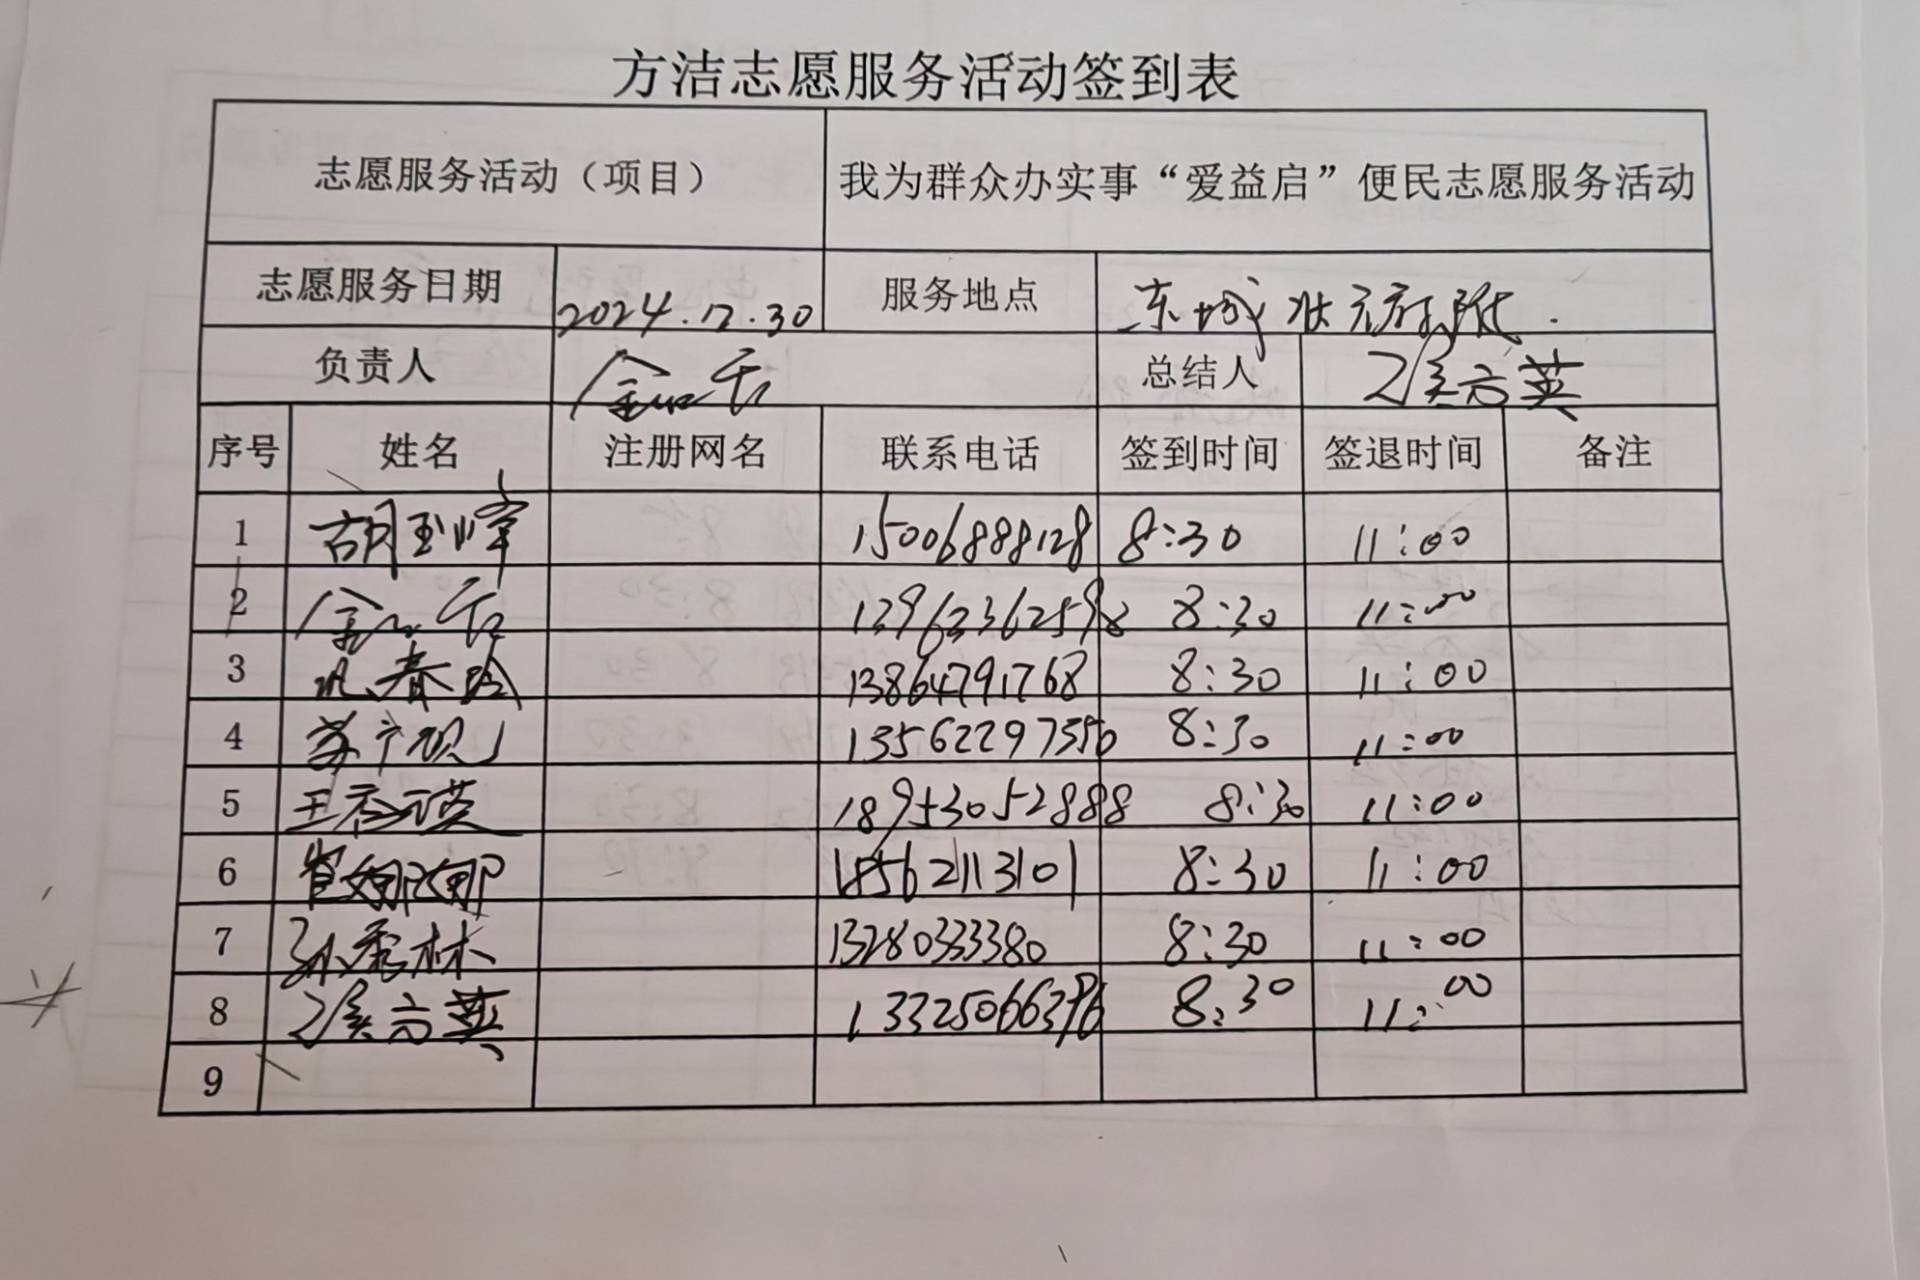 方洁志愿服务活动签到表
志愿服务活动（项目） 我为群众办实事“爱益启”便民志愿服务活动
志愿服务日期 2024.12.30 服务地点 东城状元府院.
负责人 总结人 侯六英
序号 姓名 注册网名 联系电话 签到时间 签退时间 备注
1 胡玉峰 15006888128 8:30 11:00
2 13962362598 8:30 11:00
3 13864791768 8:30 11:00
4 13562297350 8:30 11:00
5 18953052888 8:30 11:00
6 崔娜娜 18562113101 8:30 11:00
7 孙秀林 13280333380 8:30 11:00
8 侯六英 13325066396 8:30 11:00
9